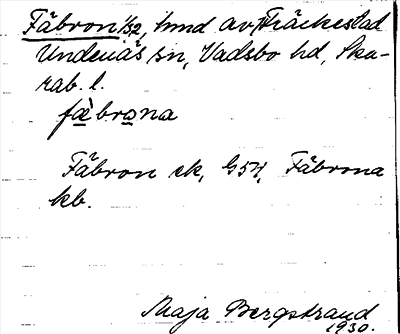 Fäbron 1/32, hmd av Fräckestad
Undenäs sn, Vadsbo hd, Ska-
rab. l.
fæ̀brona
Fäbron ek, G54, Fäbrona
kb.
Maja Bergstrand
1930.